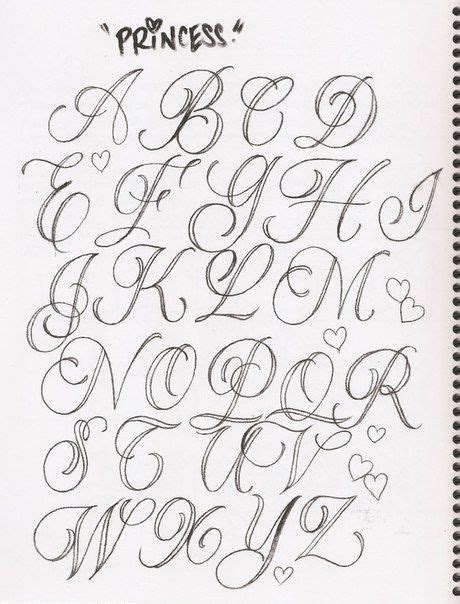 "PRiNCESS."
A B C D
E F G H I
J K L M
N O P Q R
S T U V
W X Y Z